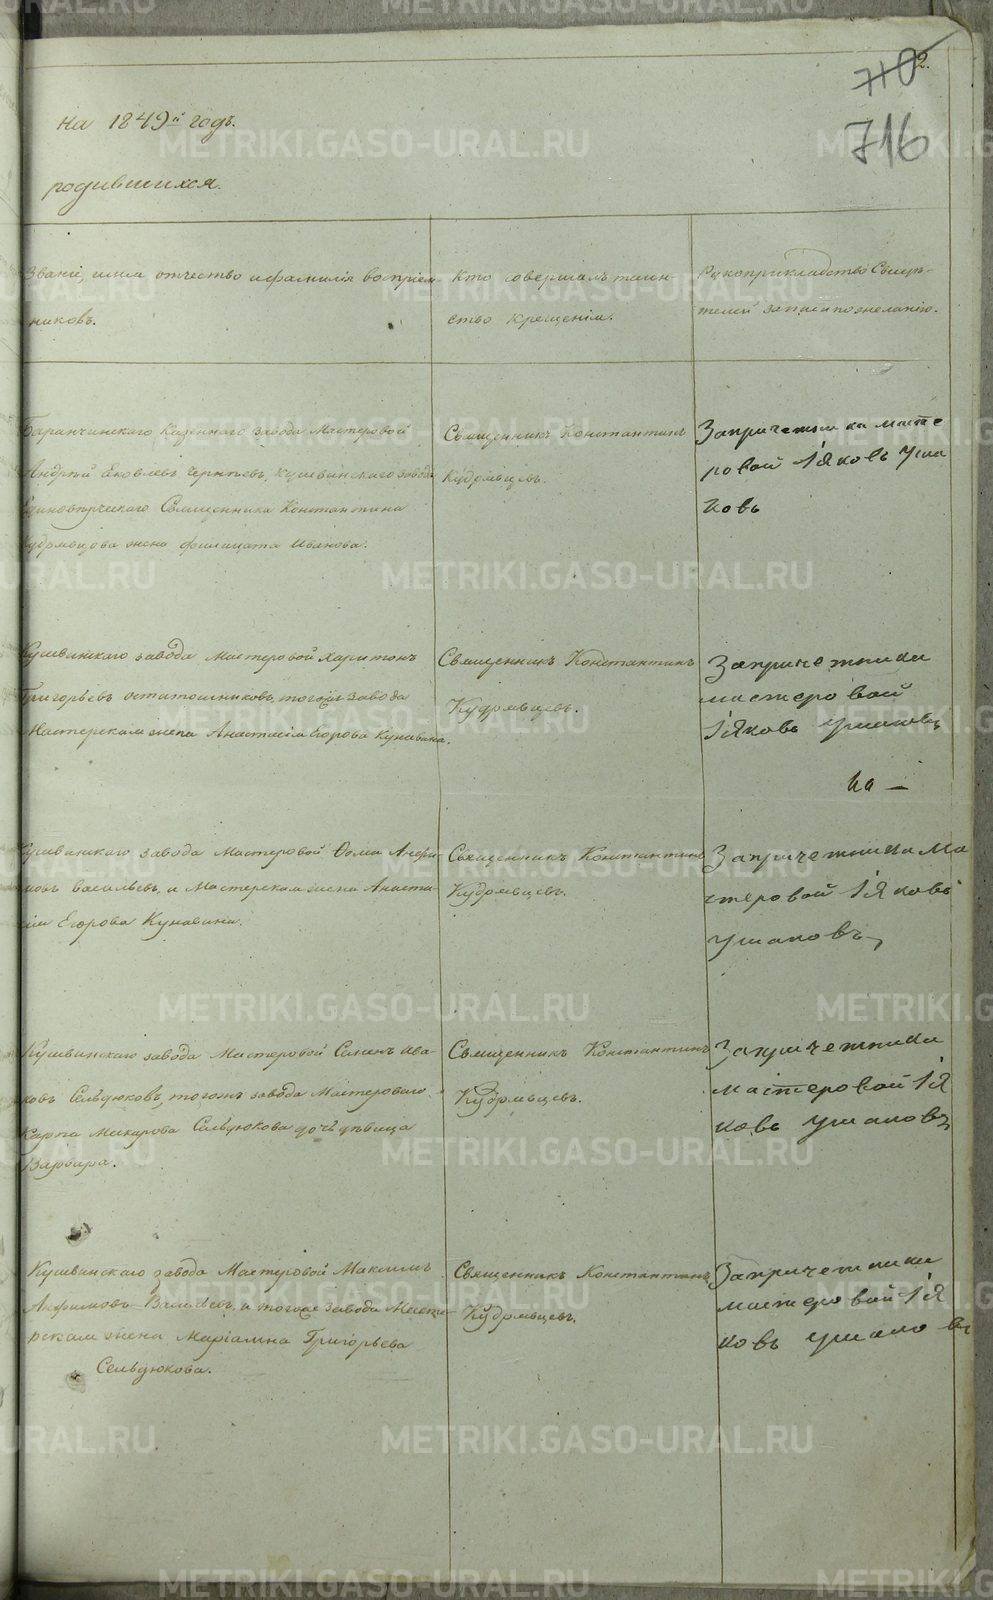 2.
710
716
На 1849й годъ.
родившихся.
Званіе, имя отчество и фамилія воспріем-
никовъ.
Кто совершалъ таин
ство крещенія.
Рукоприкладство Свидѣ-
телей записи по желанію.
Баранчинскаго Казеннаго завода Мастеровой
Андрей Яковлевъ, Кушвинскаго завода
Единовѣрческаго Священника Константина
Кудрявцова жена Филицата Иванова.
Священникъ Константинъ
Кудрявцевъ.
За причетника масте
ровой Іяковъ Уша
ковъ
Кушвинскаго завода Мастеровой Харитонъ
Григорьевъ, тогожъ завода
Мастерская жена Анастасія Егорова Кунавина.
Священникъ Константинъ
Кудрявцевъ.
За причетника
мастеровой
Іяковъ Ушаковъ
Кушвинскаго завода Мастеровой Фома Анфи
мовъ Васильевъ, и Мастерская жена Анаста
сія Егорова Кунавина.
Священникъ Константинъ
Кудрявцевъ.
За причетника Ма
стеровой Іяковъ
Ушаковъ
Кушвинскаго завода Мастеровой Ива
ковъ Сельдюковъ, тогожъ завода Мастероваго
Карпа Макарова Сельдюкова дочь дѣвица
Варвара.
Священникъ Константинъ
Кудрявцевъ.
За причетника
мастеровой Ія
ковъ Ушаковъ
Кушвинскаго завода Мастеровой Максимъ
Анфимовъ Васильевъ, и тогоже завода Масте-
рская жена Маріамна Григорьева
Сельдюкова.
Священникъ Константинъ
Кудрявцевъ.
За причетника
мастеровой Ія
ковъ Ушаковъ
METRIKI.GASO-URAL.RU